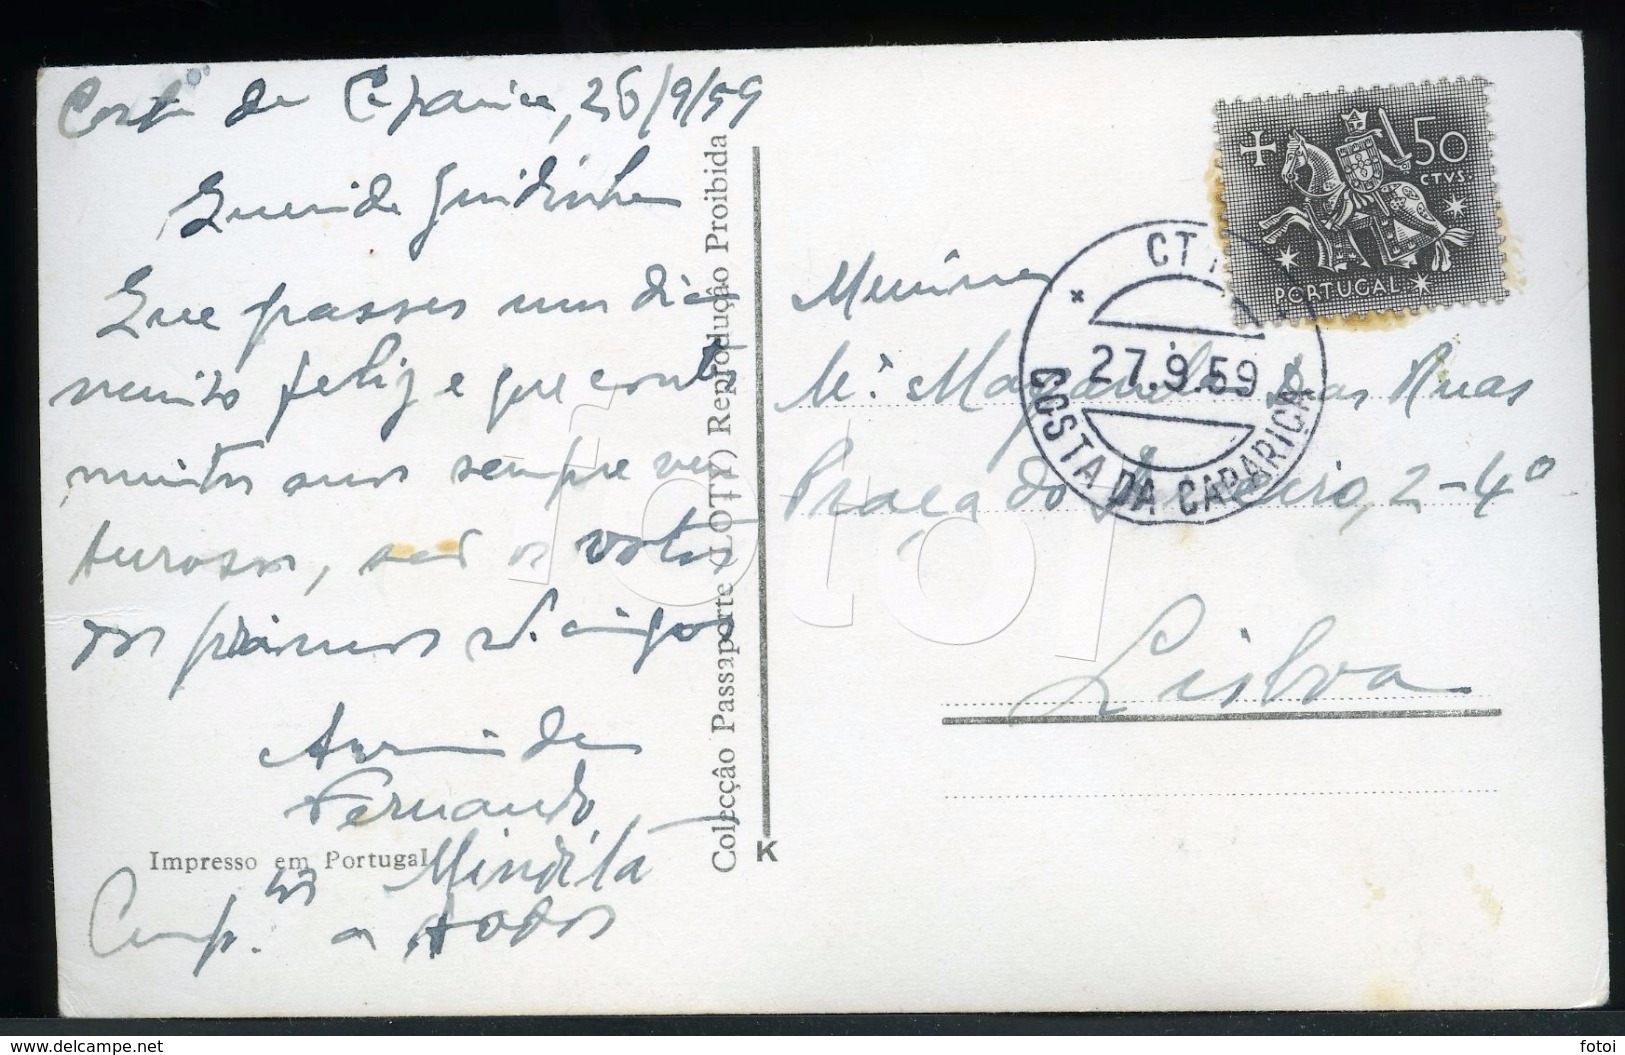 Costa da Caparica, 26/9/59
Querida Guidinha
Que passes um dia
muito feliz e que contes
muitos anos sempre ven
turosos, são os votos
dos primos e amigos
Armindo
Fernando
Mindita
Cump. tos a todos
Impresso em Portugal
Colecção Passaporte (LOTY) Reprodução Proibida
K
Menina
M.ª Das Ruas
Praça do 2-4º
Lisboa
50
CTVS.
PORTUGAL
CTT
27.9.59
COSTA DA CAPARICA
fotoj
www.delcampe.net
fotoj